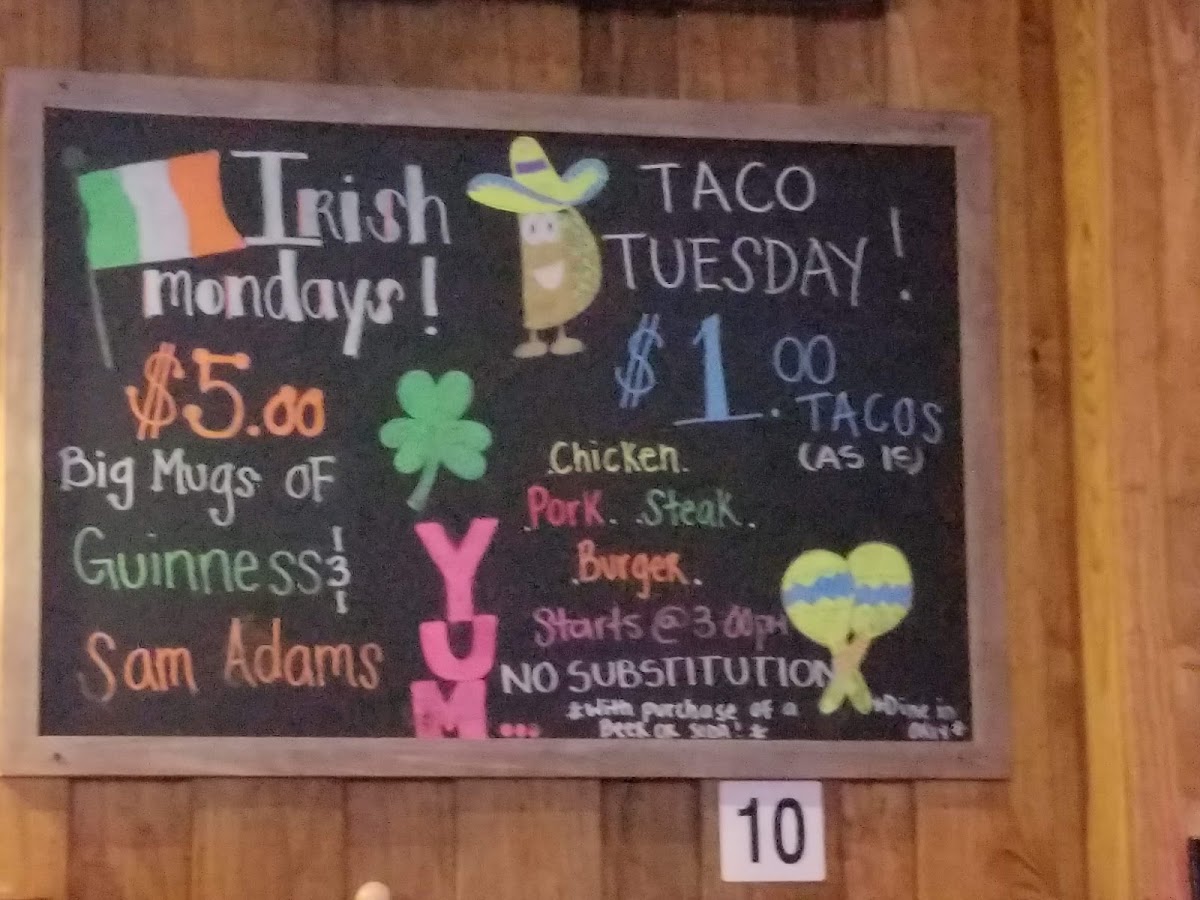 Irish
mondays!
$5.00
Big Mugs of
Guinness &
Sam Adams
YUM...
TACO
TUESDAY!
$1.00
TACOS
(AS IS)
.Chicken.
.Pork. .Steak.
.Burger.
Starts @ 3:00pm
NO SUBSTITUTION
*With purchase of a
Beer or soda! *
*Dine in
only*
10